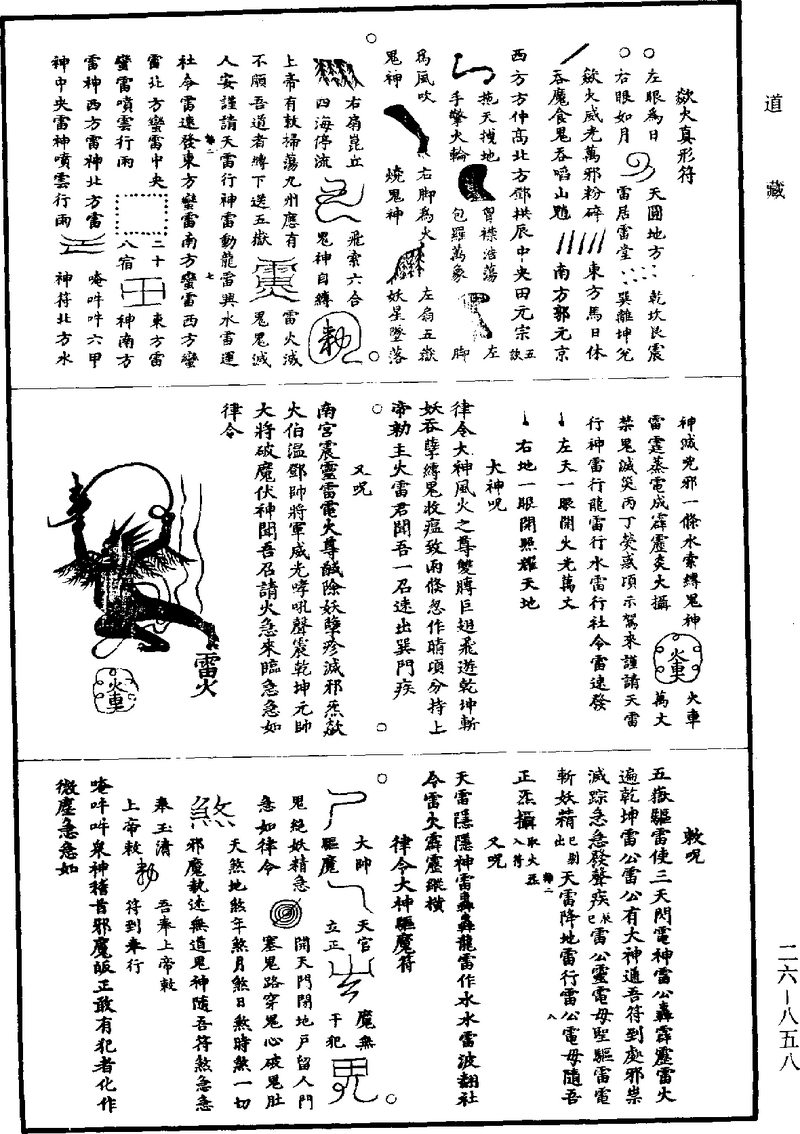 道藏
歘火真形符
○左眼為日
天圓地方
乾坎艮震
○右眼如月
雷居雷堂
巽離坤兌
歘火威光萬邪粉碎
東方馬日休
吞魔食鬼吞啗山魈
南方郭元京
西方方仲高北方鄧拱辰中央田元宗
拖天拽地
胷襟浩蕩
左
手擎火輪
包羅萬象
脚
為風吹
右脚為火
左扇五嶽
鬼神
燒鬼神
妖星墜落
右扇崑丘
飛索六合
四海停流
鬼神自縛
勑
上帝有敕掃蕩九州應有
雷火滅
不順吾道者縛下送五嶽
鬼鬼滅
人安謹請天雷行神雷動龍雷興水雷運
社令雷速發東方蠻雷南方蠻雷西方蠻
雷北方蠻雷中央
二十
東方雷
蠻雷噴雲行雨
八宿
神南方
雷神西方雷神北方雷
唵吽吽六甲
神中央雷神噴雲行雨
神符北方水
神滅光邪一條水索縛鬼神
火車
雷霆蒸電成霹靂炎火攝
萬丈
火車
禁鬼滅災丙丁熒惑項示駕來謹請天雷
行神雷行龍雷行水雷行社令雷速發
左天一眼開火光萬丈
右地一眼開照耀天地
大神呪
律令大神風火之尊雙膊巨翅飛遊乾坤斬
妖吞孽縛鬼收瘟致雨倏忽作晴頃分持上
帝勑主火雷君聞吾一召速出巽門疾
又呪
南宮震靈雷電火尊馘除妖孽殄滅邪炁歘
火伯溫鄧帥將軍威光哮吼聲震乾坤元帥
大將破魔伏神聞吾召請火急來臨急急如
律令
雷火
火車
敕呪
五嶽驅雷使三天閃電神雷公轟霹靂雷火
遍乾坤雷公雷公有大神通吾符到處邪祟
滅踪急急發聲疾雷公靈電母聖驅雷電
斬妖精天雷降地雷行雷公電母隨吾
正炁攝
取火炁入符
又呪
天雷隱隱神雷轟轟龍雷作水水雷波翻社
令雷火霹靂縱橫
律令大神驅魔符
大帥
天官
魔無
驅魔
立正
干犯
鬼絕妖精急
開天門閉地戶留人門
急如律令
塞鬼路穿鬼心破鬼肚
天煞地煞年煞月煞日煞時煞一切
煞
邪魔執速無道鬼神隨吾符煞急急
奉玉清
吾奉上帝敕
上帝敕
勑
符到奉行
唵吽吽泉神稽首邪魔皈正敢有犯者化作
微塵急急如
二六—八五八